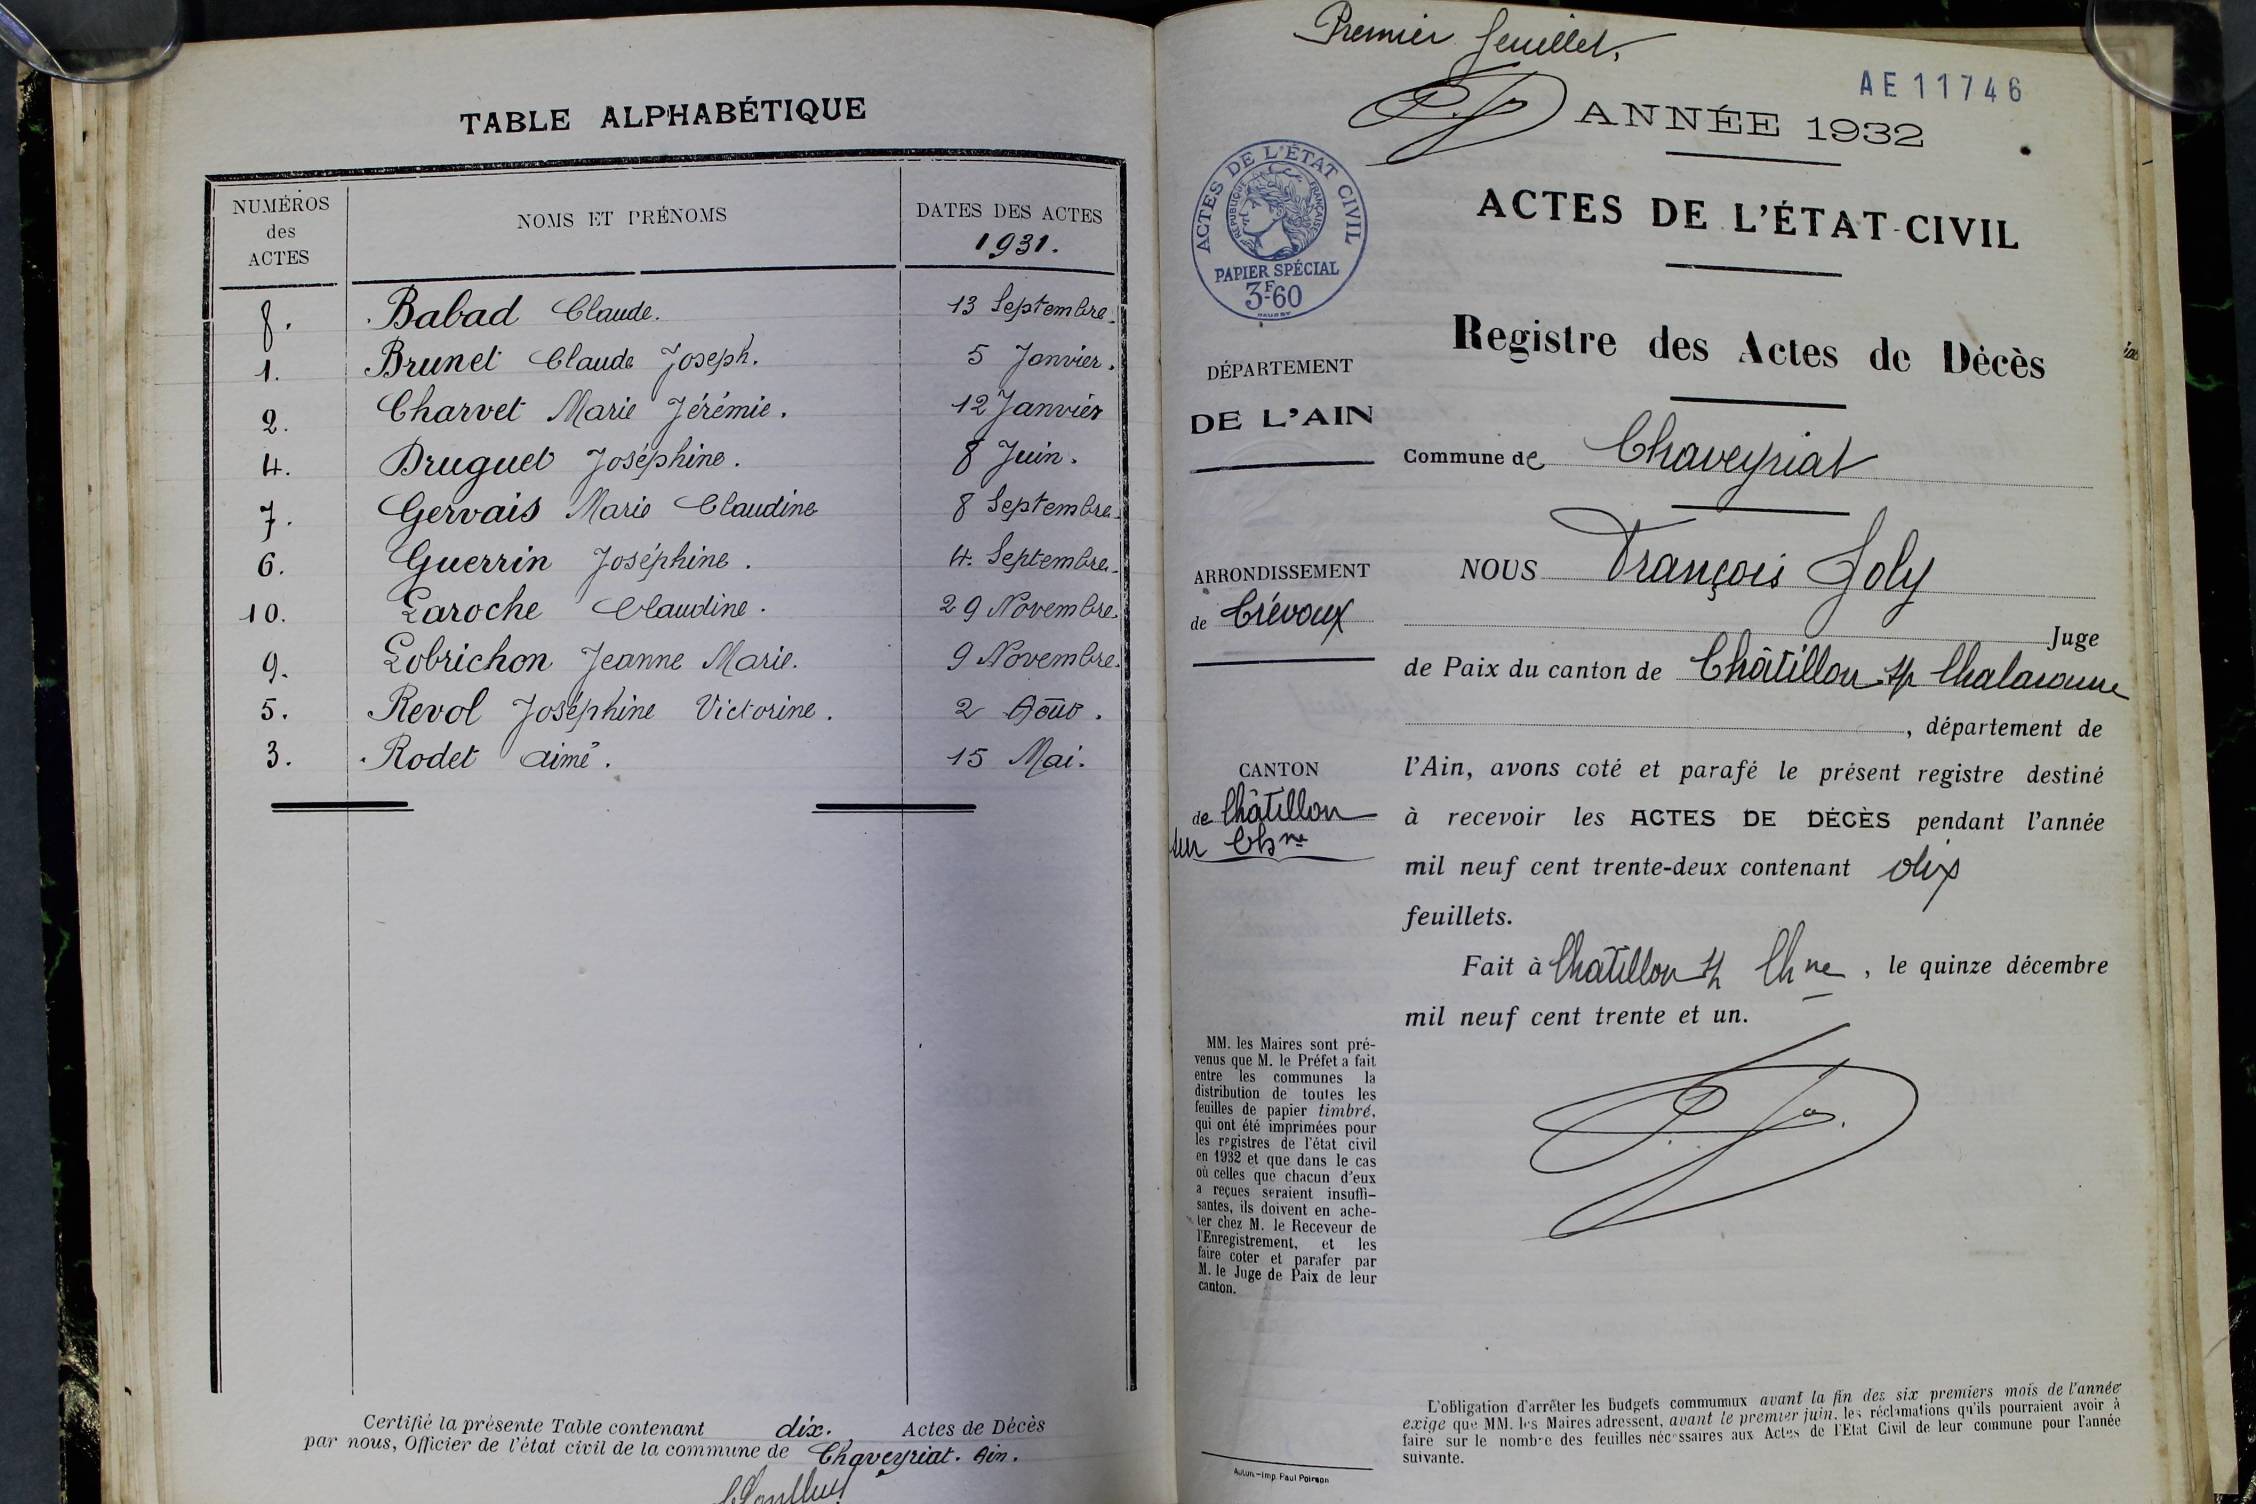 TABLE ALPHABÉTIQUE
NUMÉROS des ACTES
NOMS ET PRÉNOMS
DATES DES ACTES
1931.
8. Babad Claude. 13 Septembre.
1. Brunet Claude Joseph. 5 Janvier.
2. Charvet Marie Jérémie. 12 Janvier
4. Druguet Joséphine. 8 Juin.
7. Gervais Marie Claudine 8 Septembre.
6. Guerrin Joséphine. 4. Septembre.
10. Laroche Claudine. 29 Novembre.
9. Lobrichon Jeanne Marie. 9 Novembre.
5. Revol Joséphine Victorine. 2 Août.
3. Rodet Aimé. 15 Mai.
Certifié la présente Table contenant dix. Actes de Décès
par nous, Officier de l'état civil de la commune de Chaveyriat. Ain.
Premier feuillet,
AE11746
ANNÉE 1932
ACTES DE L'ÉTAT CIVIL
RÉPUBLIQUE FRANÇAISE
PAPIER SPÉCIAL
3F-60
ACTES DE L'ÉTAT-CIVIL
Registre des Actes de Décès
DÉPARTEMENT
DE L'AIN
Commune de Chaveyriat
ARRONDISSEMENT
de Trévoux
NOUS François Joly
Juge
de Paix du canton de Châtillon s/ Chalaronne
, département de
CANTON
de Châtillon
sur Chne
l'Ain, avons coté et parafé le présent registre destiné
à recevoir les ACTES DE DÉCÈS pendant l'année
mil neuf cent trente-deux contenant dix
feuillets.
Fait à Châtillon s/ Chne, le quinze décembre
mil neuf cent trente et un.
MM. les Maires sont pré-
venus que M. le Préfet a fait
entre les communes la
distribution de toutes les
feuilles de papier timbré,
qui ont été imprimées pour
les registres de l'état civil
en 1932 et que dans le cas
où celles que chacun d'eux
a reçues seraient insuffi-
santes, ils doivent en ache-
ter chez M. le Receveur de
l'Enregistrement, et les
faire coter et parafer par
M. le Juge de Paix de leur
canton.
L'obligation d'arrêter les budgets communaux avant la fin des six premiers mois de l'année
exige que MM. les Maires adressent, avant le premier juin, les réclamations qu'ils pourraient avoir à
faire sur le nombre des feuilles nécessaires aux Actes de l'Etat Civil de leur commune pour l'année
suivante.
Autun.-Imp. Paul Poirson